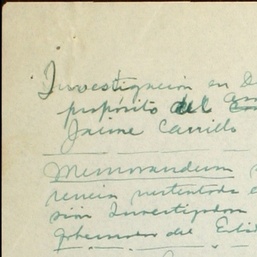 Investigación en D
propósito del
Jaime Carrillo
Memorandum
rencia sustentada e
sión Investigadora
gobernador del Esta